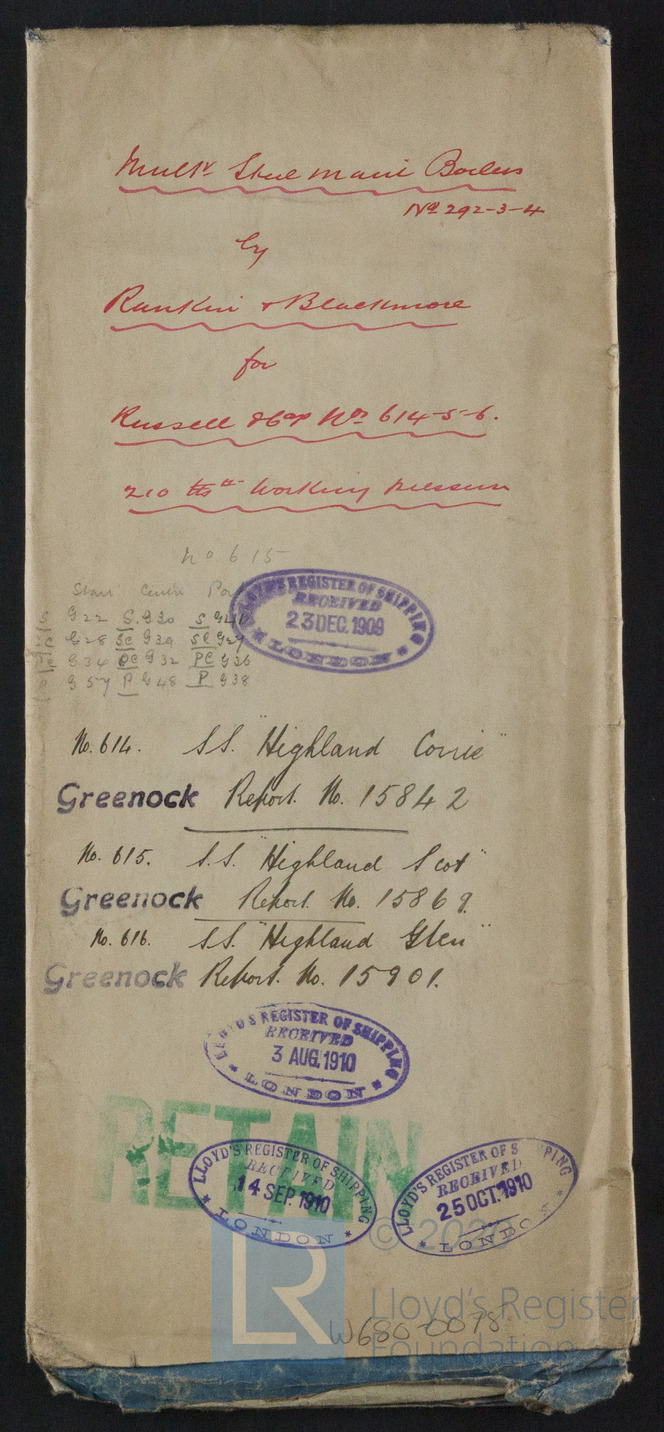 Multr Steel Main Boilers
No 292-3-4
by
Rankin & Blackmore
for
Russell & Co Nos 614-5-6.
210 lbs Working Pressure
No 615
Starr Centre Port
S G22 S. G30 S
C G28 SC G39 SC G29
PC G34 PC G32 PC G36
P G57 P G48 P G38
LLOYD'S REGISTER OF SHIPPING
RECEIVED
23 DEC. 1909
LONDON
No. 614. S.S. "Highland Corrie"
Greenock Report. No. 15842
No. 615. S.S. "Highland Scot"
Greenock Report. No. 15869.
No. 616. S.S. "Highland Glen"
Greenock Report. No. 15901.
LLOYD'S REGISTER OF SHIPPING
RECEIVED
3 AUG. 1910
LONDON
RETAIN
LLOYD'S REGISTER OF SHIPPING
RECEIVED
14 SEP. 1910
LONDON
LLOYD'S REGISTER OF SHIPPING
RECEIVED
25 OCT. 1910
LONDON
LR
© 2020
Lloyd's Register
Foundation
W680-0078